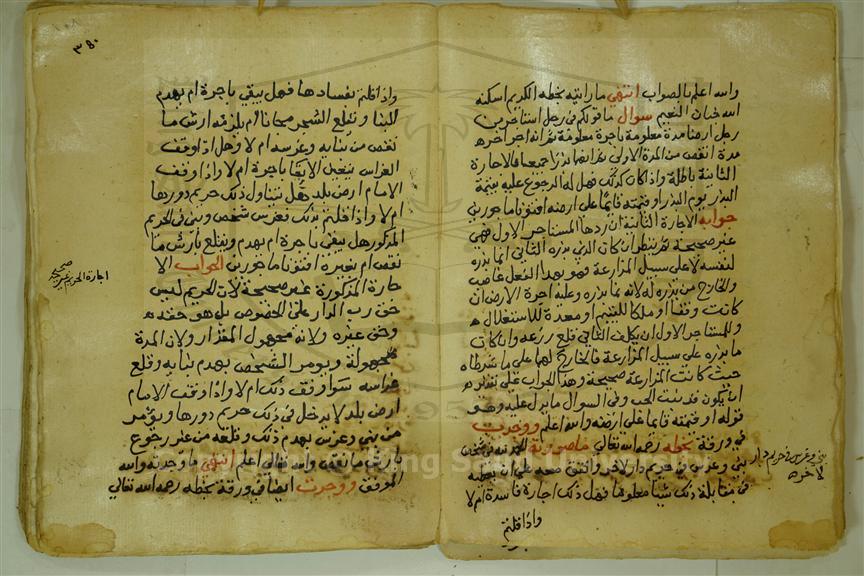 والله اعلم بالصواب انتهى ما رايته بخطه الكريم اسكنه
الله جنان النعيم سوال ما قولكم في رجل استاجر من
رجل ارضا مدة معلومة باجرة معلومة ثم انه اجر اخر
مدة انقص من المدة الاولى ثم انهما بذرا جميعا فالاجارة
الثانية باطلة واذا كان كذلك فهل له الرجوع عليه بقيمة
البذار يوم البذر او قيمته قايما على ارضه افتونا ماجورين
جوابه الاجارة الثانية ان ردها المستاجر الاول فهي
غير صحيحة ثم ينظر ان كان الذي بذره الثاني انما بذره
لنفسه لا على سبيل المزارعة فهو بهذا الفعل غاصب
والخارج من بذره له لانه نما بذره وعليه اجرة الارض ان
كانت وقفا او ملكا لليتيم او معدة للاستغلال
وللمستاجر الاول ان يكلف الثاني قلع زرعه وان كان
ما بذره على سبيل المزارعة فالخارج لهما على ما شرطاه
حيث كانت المزارعة صحيحة وهذا الجواب على تقدير
ان يكون قد نبت الحب وفي السوال ما يدل عليه وهو
قوله او قيمته قايما على ارضه والله اعلم ووجدت
في ورقة بخطه رحمه الله تعالى ما صورته الحمد لله في شخص
بنى وغرس في حريم دار لاخر واتفق معه على ان يعطيه
في مقابلة ذلك شيا معلوما فهل ذلك اجارة فاسدة ام لا
واذا قلتم
بنى وغرس في حريم دار
لاخر
٣٤٠
واذا قلتم بفسادها فهل يبقى باجرة ام يهدم
البنا ويقلع الشجر مجانا ام يلزمه ارش ما
نقص من بنايه وغرسه ام لا وهل اذا وقف
الغراس يتعين الابقا باجرة ام لا واذا وقف
الامام ارض بلد هل يتناول ذلك حريم دورها
ام لا واذا قلتم بذلك فغرس شخص وبنى في الحريم
المذكور هل يبقى باجرة ام يهدم ويقلع بارش ما
نقص ام بغيره افتونا ماجورين الجواب الا
جارة المذكورة غير صحيحة لان الحريم ليس
حق رب الدار على الخصوص بل هو حقه
وحق غيره ولانه مجهول المقدار ولان المدة
مجهولة ويومر الشخص بهدم بنايه وقلع
غراسه سوا وقف ذلك ام لا واذا وقف الامام
ارض بلد لا يدخل في ذلك حريم دورها ويؤمر
من بنى وغرس بهدم ذلك وقلعه من غير رجوع
بارش ما نقص والله تعالى اعلم انتهى ما وجدته والله
الموفق ووجدت ايضا في ورقة بخطه رحمه الله تعالى
اجارة الحريم غير صحيحة